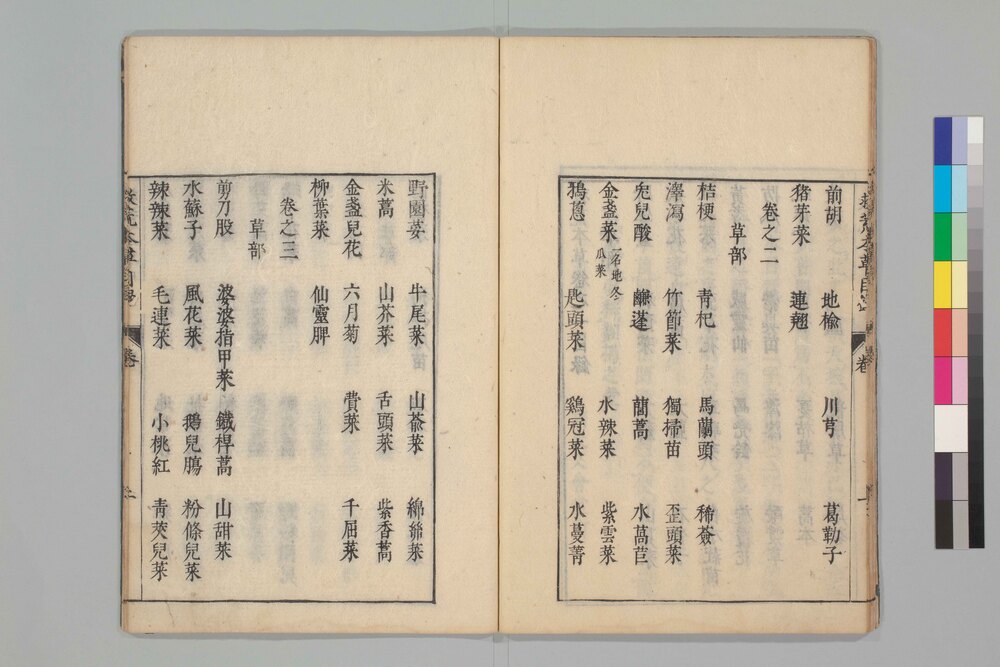 前胡 地楡 川芎 葛勒子
猪芽菜 連翹
卷之二
草部
桔梗 青杞 馬蘭頭 稀薟
澤瀉 竹節菜 獨掃苗 歪頭菜
兎兒酸 鹻蓬 蕳蒿 水萵苣
金盞菜 一名地冬瓜菜 水辣菜 紫雲菜
鴉葱 匙頭菜 鷄冠菜 水蔓菁
野園荽 牛尾菜 山萮菜 綿絲菜
米蒿 山芥菜 舌頭菜 紫香蒿
金盞兒花 六月菊 費菜 千屈菜
柳葉菜 仙靈脾
卷之三
草部
剪刀股 婆婆指甲菜 鐵桿蒿 山甜菜
水蘇子 風花菜 鵝兒腸 粉條兒菜
辣辣菜 毛連菜 小桃紅 青莢兒菜